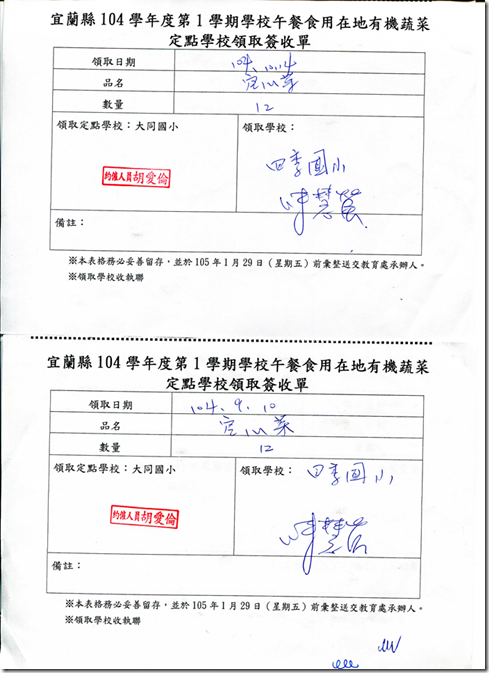 宜蘭縣 104 學年度第 1 學期學校午餐食用在地有機蔬菜
定點學校領取簽收單
領取日期 104. 10.14
品名 空心菜
數量 12
領取定點學校：大同國小 領取學校：
四季國小
約僱人員胡愛倫
備註：
※本表格務必妥善留存，並於 105 年 1 月 29 日（星期五）前彙整送交教育處承辦人。
※領取學校收執聯
宜蘭縣 104 學年度第 1 學期學校午餐食用在地有機蔬菜
定點學校領取簽收單
領取日期 104. 9. 10
品名 空心菜
數量 12
領取定點學校：大同國小 領取學校： 四季國小
約僱人員胡愛倫
備註：
※本表格務必妥善留存，並於 105 年 1 月 29 日（星期五）前彙整送交教育處承辦人。
※領取學校收執聯